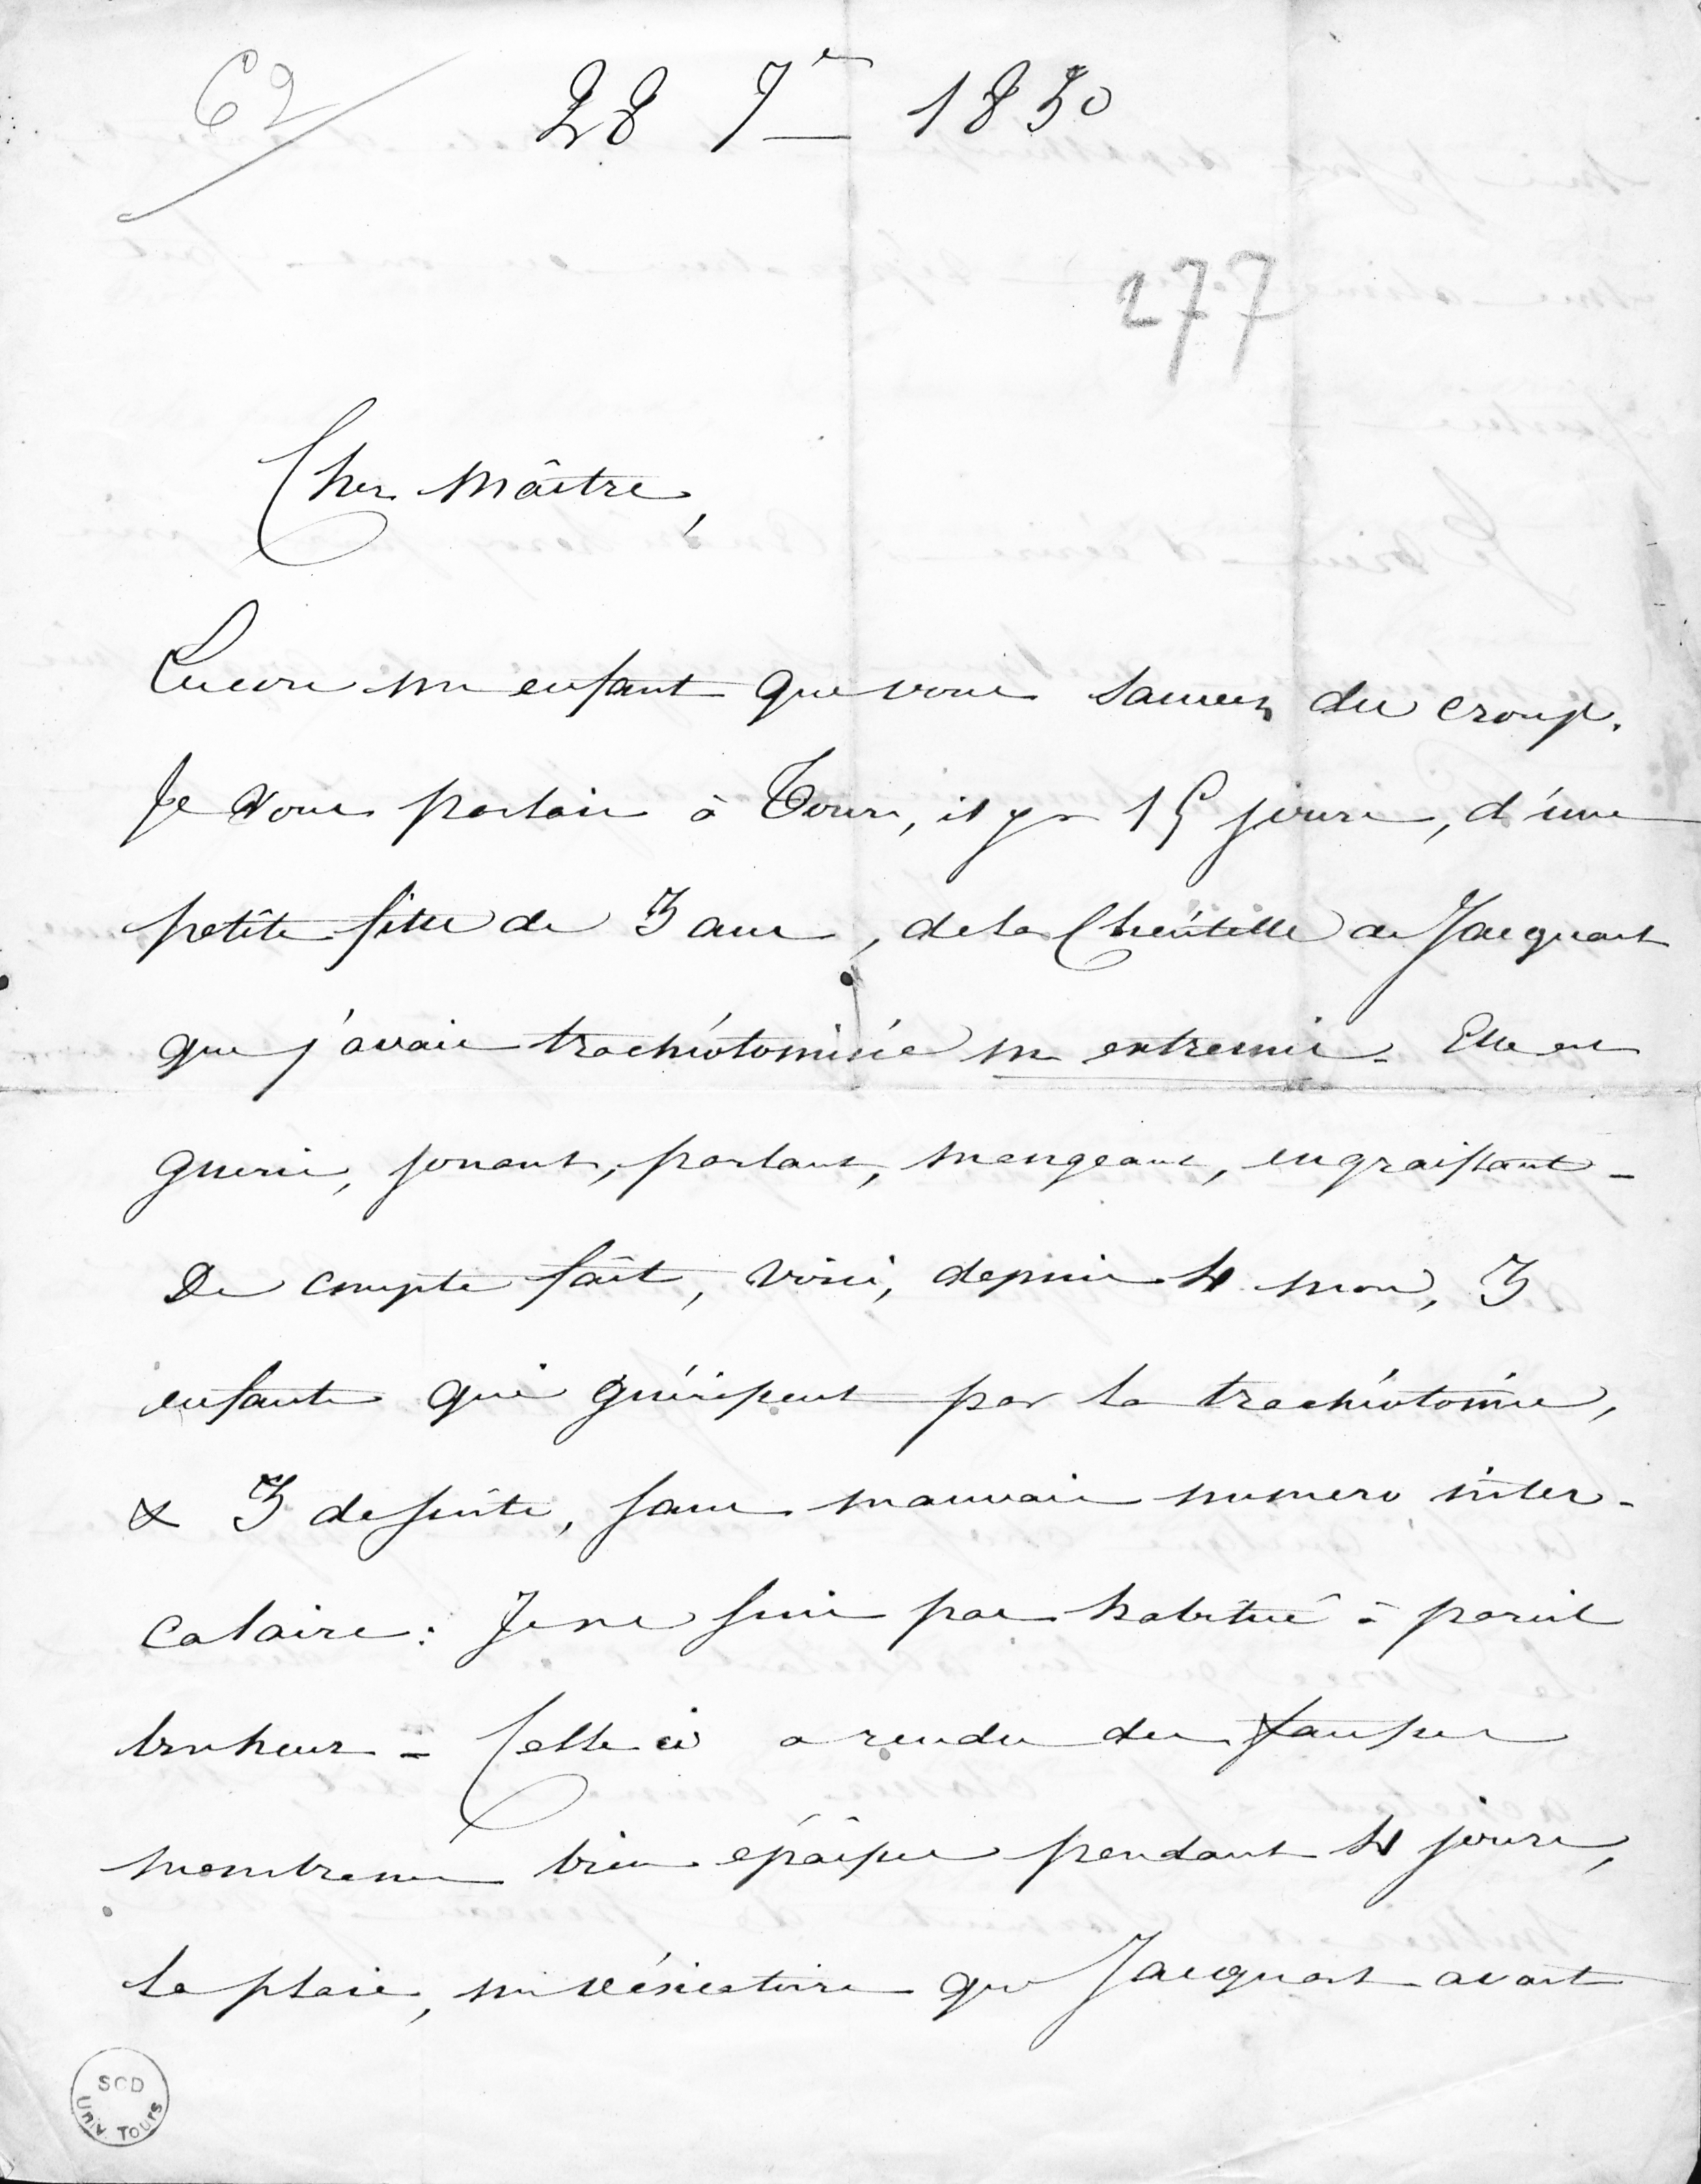 62
28 7re 1850
277
Cher Maître,
Encore un enfant que vous sauvez du croup.
Je vous parlais à Tours, il y a 15 jours, d'une
petite fille de 3 ans, de la Clientelle de Jacquart
que j'avais trachéotomisée in extremis. Elle est
guerie, jouant, parlant, mangeant, engraissant –
De compte fait, voici, depuis 4 mois, 3
enfants qui guérissent par la trachéotomie,
& 3 de suite, sans mauvais numero inter-
calaire: Je ne suis pas habitué à pareil
bonheur – Celle ci a rendu des fausses
membranes bien épaisses pendant 4 jours,
la plaie, un vésicatoire que Jacquart avait
SCD
Univ. Tours